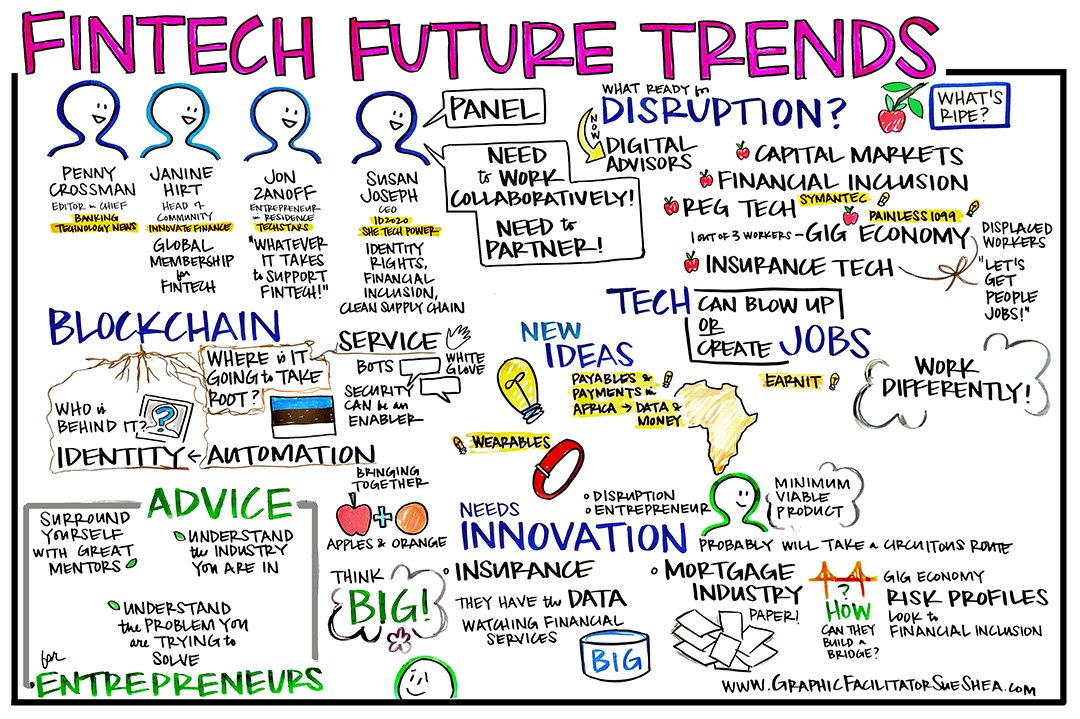 FINTECH FUTURE TRENDS
PENNY
CROSSMAN
EDITOR in CHIEF
BANKING
TECHNOLOGY NEWS
JANINE
HIRT
HEAD of
COMMUNITY
INNOVATE FINANCE
GLOBAL
MEMBERSHIP
for
FINTECH
JON
ZANOFF
ENTREPRENEUR
in RESIDENCE
TECHSTARS
"WHATEVER
IT TAKES
to SUPPORT
FINTECH!"
SUSAN
JOSEPH
CEO
ID2020
SHE TECH POWER
IDENTITY
RIGHTS,
FINANCIAL
INCLUSION,
CLEAN SUPPLY CHAIN
PANEL
NEED
to WORK
COLLABORATIVELY!
NEED to
PARTNER!
WHAT READY for
DISRUPTION?
NOW
DIGITAL
ADVISORS
WHAT'S
RIPE?
CAPITAL MARKETS
FINANCIAL INCLUSION
REG TECH
SYMANTEC
PAINLESS 1099
1 OUT OF 3 WORKERS - GIG ECONOMY
INSURANCE TECH
DISPLACED
WORKERS
"LET'S
GET
PEOPLE
JOBS!"
BLOCKCHAIN
WHERE is IT
GOING to TAKE
ROOT?
WHO is
BEHIND IT?
?
IDENTITY ← AUTOMATION
SERVICE
WHITE
GLOVE
BOTS
SECURITY
CAN be an
ENABLER
NEW
IDEAS
PAYABLES &
PAYMENTS in
AFRICA → DATA &
MONEY
WEARABLES
TECH
CAN BLOW UP
OR
CREATE
JOBS
EARNIT
WORK
DIFFERENTLY!
ADVICE
SURROUND
YOURSELF
WITH GREAT
MENTORS
UNDERSTAND
the INDUSTRY
YOU ARE IN
UNDERSTAND
the PROBLEM YOU
are TRYING to
SOLVE
for
ENTREPRENEURS
BRINGING
TOGETHER
+
APPLES & ORANGE
THINK
BIG!
NEEDS
INNOVATION
DISRUPTION
ENTREPRENEUR
MINIMUM
VIABLE
PRODUCT
PROBABLY WILL TAKE a CIRCUITOUS ROUTE
INSURANCE
THEY HAVE the DATA
WATCHING FINANCIAL
SERVICES
BIG
MORTGAGE
INDUSTRY
PAPER!
?
HOW
CAN THEY
BUILD A
BRIDGE?
GIG ECONOMY
RISK PROFILES
LOOK to
FINANCIAL INCLUSION
WWW.GRAPHICFACILITATORSUESHEA.COM